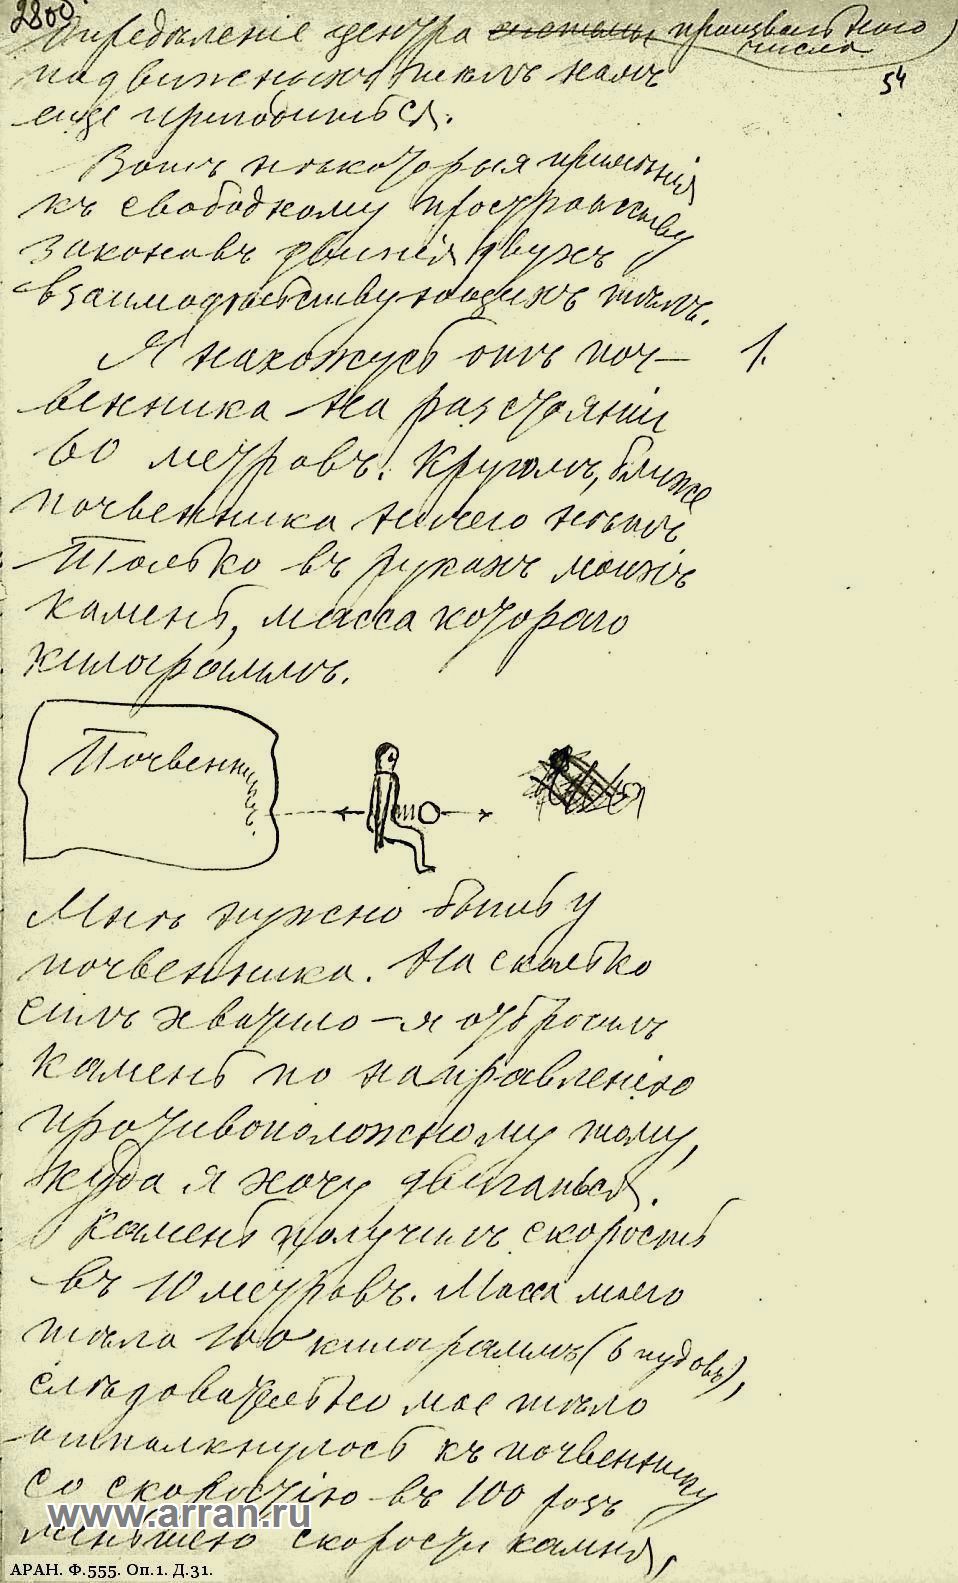 2800
54
Определенiе центра системы произвольного числа
подвижныхъ тѣлъ намъ
еще пригодится.
Вотъ нѣкоторыя примѣненiя
къ свободному пространству
законовъ движенiя двухъ
взаимодѣйствующихъ тѣлъ.
Я нахожусь отъ поч- 1.
венника на разстоянiи
60 метровъ. Кругомъ, ближе
почвенника ничего нѣтъ
Только въ рукахъ моихъ
камень, масса котораго
килограммъ.
Почвенникъ.
Мнѣ нужно быть у
почвенника. На сколько
силъ хватило – я отбросилъ
камень по направленiю
противоположному тому,
куда я хочу двигаться.
Камень получилъ скорость
въ 10 метровъ. Масса моего
тѣла 100 килограммъ (6 пудовъ),
слѣдовательно мое тѣло
оттолкнулось къ почвеннику
со скоростiю въ 100 разъ
меньшею скорости камня,
www.arran.ru
АРАН. Ф.555. Оп.1. Д.31.